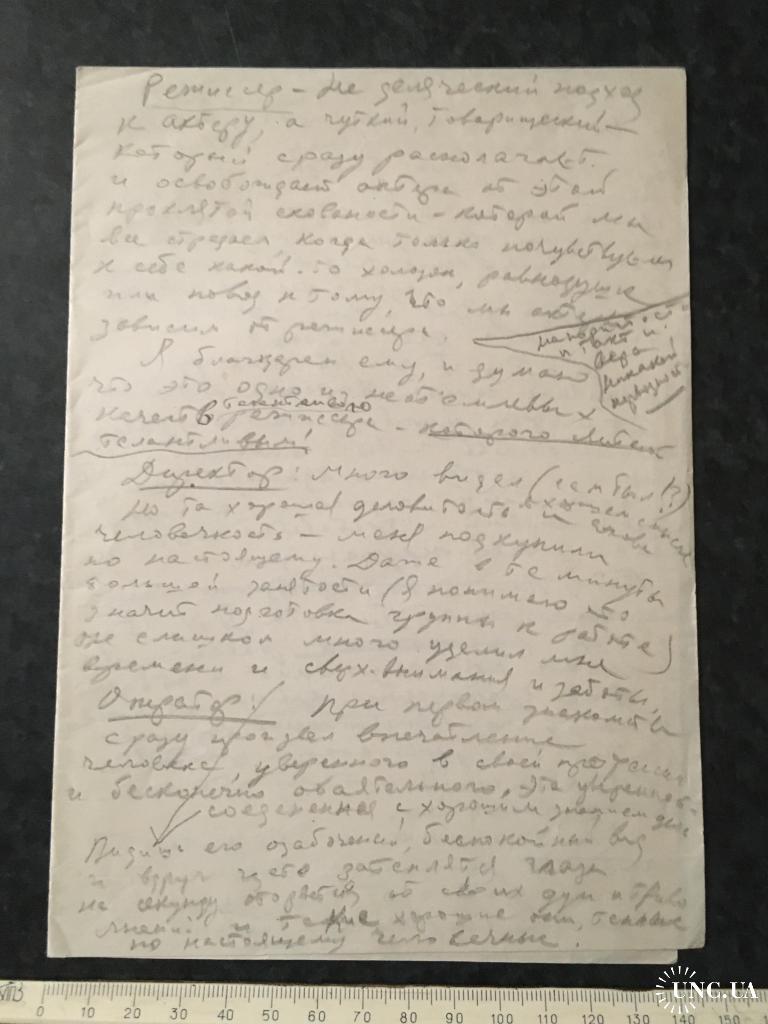 Режиссер – не делячески подход
к актеру, а чуткий, товарищеский –
который сразу располагает
и освобождает актера от этой
проклятой скованости – которой мы
все страдаем, когда только почувствуем
к себе какой-то холодок, равнодушие
или повод к тому, что мы актеры
зависим от режиссера.
и такт и
вера
никакой
нервозности
Я благодарен ему, и думаю
что это одно из неотъемлемых
качеств талантливого режиссера – которого
талантливым!
Директор: много видел (сам был!?)
Но та хорошая деловитость в хорошем смысле слова
человечность – меня подкупили
по настоящему. Даже в те минуты
большой занятости (я понимаю что
значит подготовка группы к работе)
он слишком много уделил мне
времени и сверх-внимания и заботы.
Оператор: При первом знакомстве
сразу произвел впечатление
человека уверенного в своей профессии
и бесконечно обаятельного, эта уверенность
соедененная с хорошим знанием дела
Видишь его озабоченный, беспокойный вид
и вдруг затеплятся глаза
на секунду оторвется от своих дум и
и такие хорошие они, теплые
по настоящему человечные.
0 10 20 30 40 50 60 70 80 90 100 110 120 130 140 150
UNC.UA